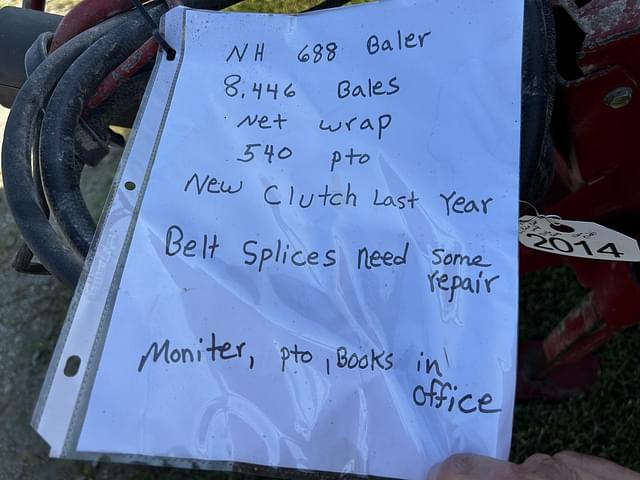 NH 688 Baler
8,446 Bales
Net wrap
540 pto
New Clutch Last Year
Belt Splices need some
repair
Moniter, pto, Books in
office
2014